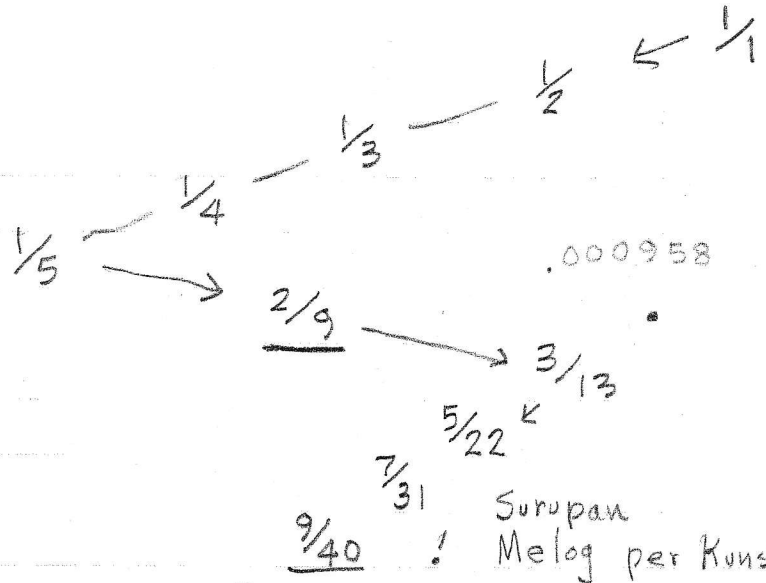 1/1
1/2
1/3
1/4
1/5
.000958
2/9
3/13
5/22
7/31
Surupan
9/40 ! Melog per Kuns